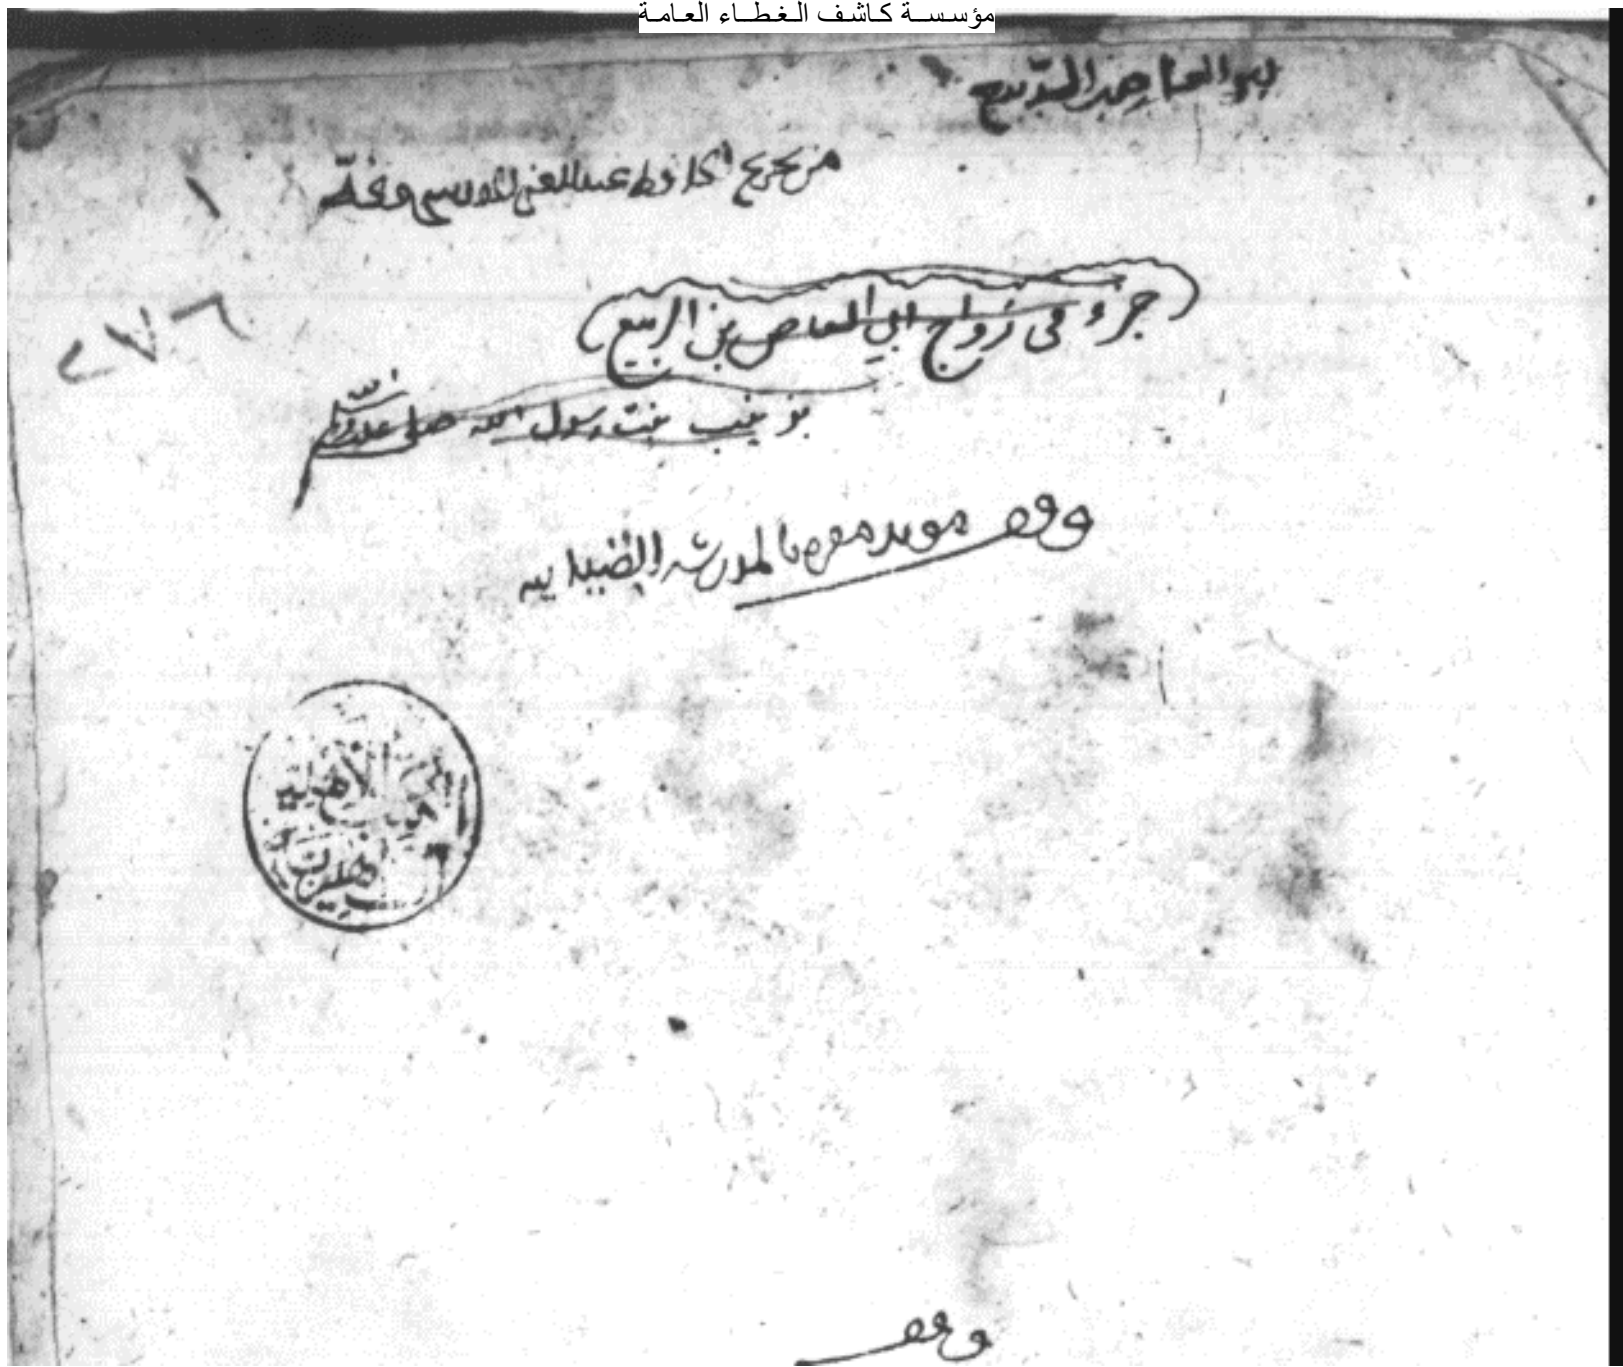 مؤسسة كاشف الغطاء العامة
ابو العاص بن الربيع
من تخريج الحافظ عبد الغني المقدسي وقفه
١
٢٧٦
جزء فى زواج ابي العاص بن الربيع
بزينب بنت رسول الله صلى الله عليه وسلم
وقف موبد مقره بالمدرسه الضيائيه
الاهليه
وقف